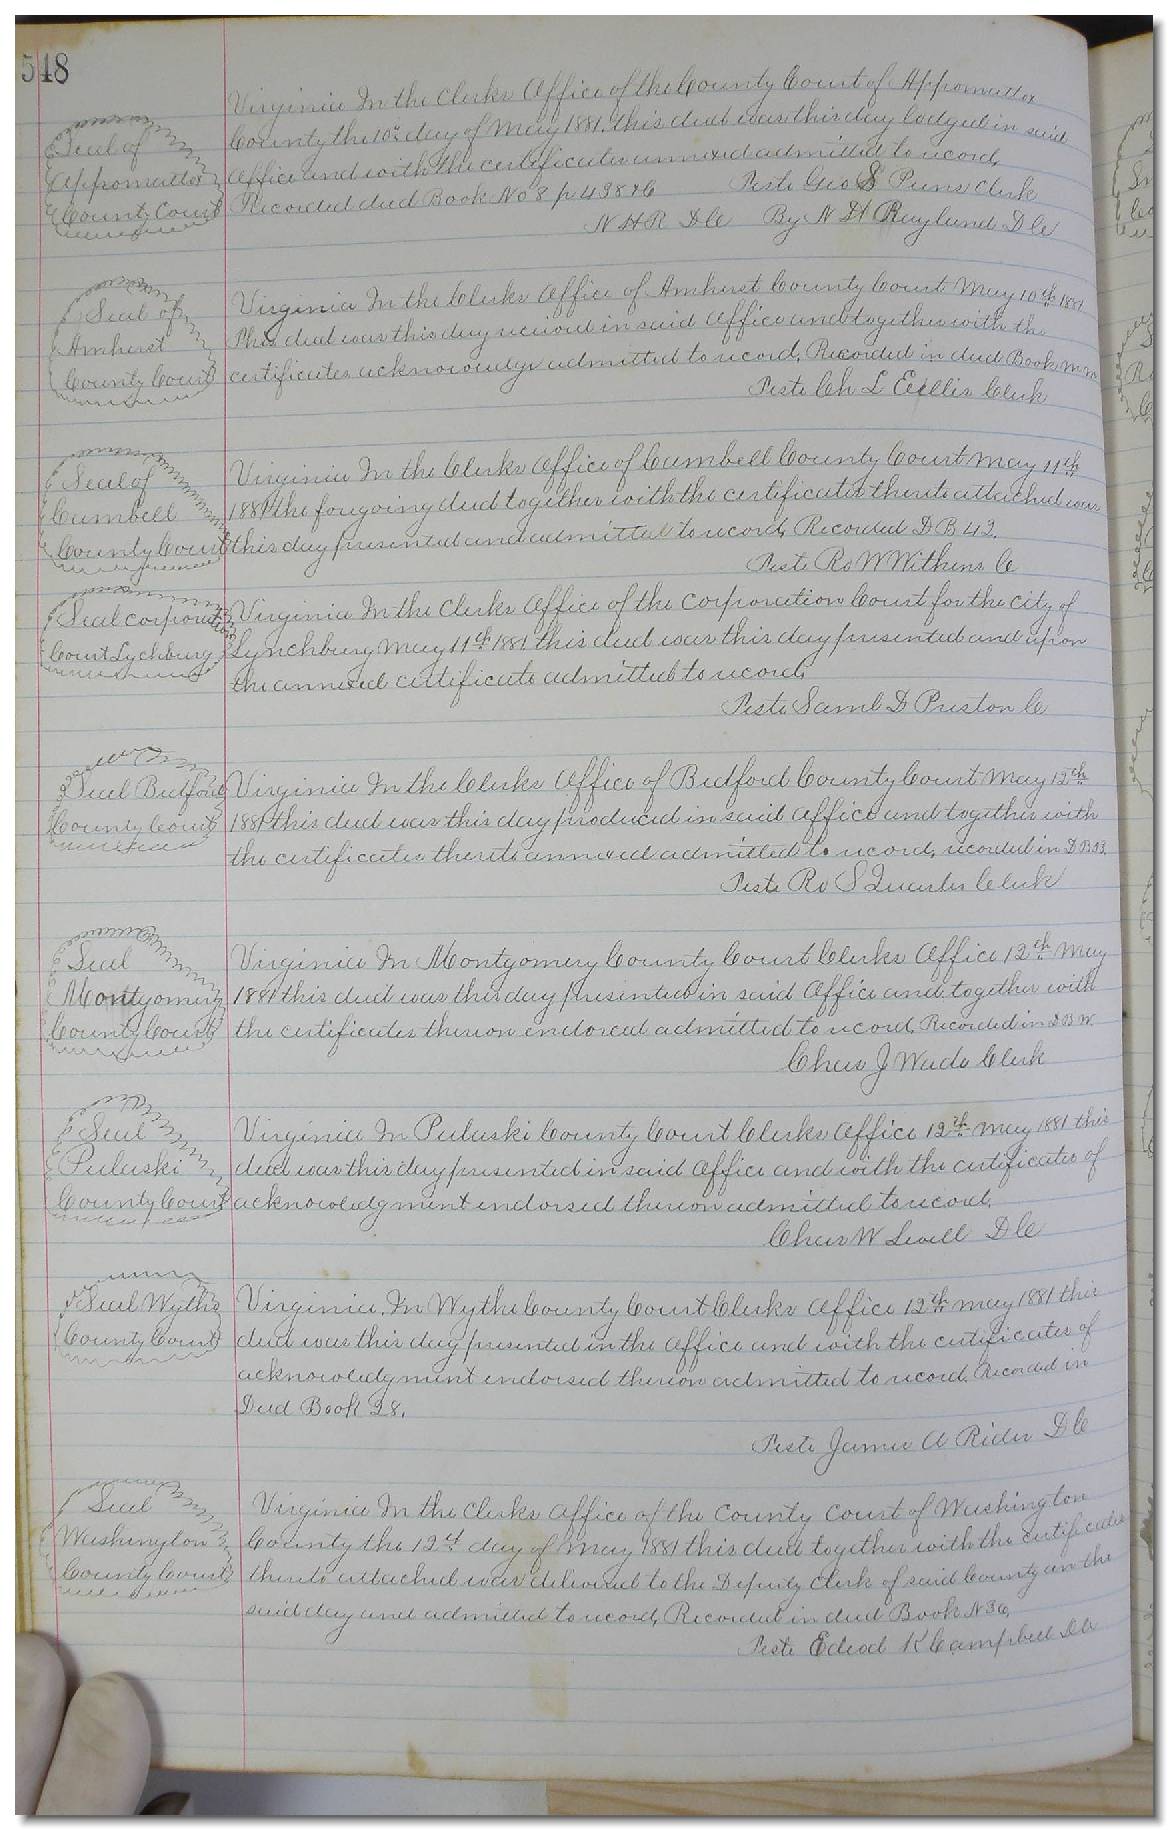 548
Virginia In the Clerks Office of the County Court of Appomattox
County the 10th day of May 1881, this deed was this day lodged in said
office and with the certificates annexed admitted to record,
Recorded deed Book No 8 p 498 &c Teste Geo S Purns Clerk
N H R D C By N H Ragland D C
Seal of
Appomattox
County Court
Virginia In the Clerks Office of Amherst County Court May 10th 1881
This deed was this day received in said office and together with the
certificates acknowledge admitted to record, Recorded in deed Book M M
Teste Ch L Ecellis Clerk
Seal of
Amherst
County Court
Virginia In the Clerks Office of Cambell County Court May 11th
1881 the forgoing deed together with the certificates thereto attached was
this day presented and admitted to record, Recorded D B 42.
Teste Ro W Withins C
Seal of
Cambell
County Court
Virginia In the Clerks Office of the Corporation Court for the City of
Lynchburg May 11th 1881 this deed was this day presented and upon
the annexed certificate admitted to record,
Teste Saml D Preston C
Seal corporation
Court Lychburg
Virginia In the Clerks Office of Bedford County Court May 12th
1881 this deed was this day produced in said office and together with
the certificates thereto annexed admitted to record, recorded in D B
Teste Ro S Quarles Clerk
Seal Bedford
County Court
Virginia In Montgomery County Court Clerks Office 12th May
1881 this deed was this day presented in said Office and together with
the certificates thereon endorced admitted to record, Recorded in D B W
Chas J Wade Clerk
Seal
Montgomery
County Court
Virginia In Pulaski County Court Clerks Office 12th May 1881 this
deed was this day presented in said Office and with the certificates of
acknowledgment endorsed thereon admitted to record,
Chas W Sewell D C
Seal
Pulaski
County Court
Virginia, In Wythe County Court Clerks Office 12th May 1881 this
deed was this day presented in the office and with the certificates of
acknowledgment endorsed thereon admitted to record, Recorded in
Deed Book 28,
Teste James A Rider D C
Seal Wythe
County Court
Virginia In the Clerks Office of the County Court of Washington
County the 12th day of May 1881 this deed together with the certificates
thereto attached was delivered to the Deputy Clerk of said County on the
said day and admitted to record, Recorded in deed Book N 36,
Teste K Campbell D C
Seal
Washington
County Court